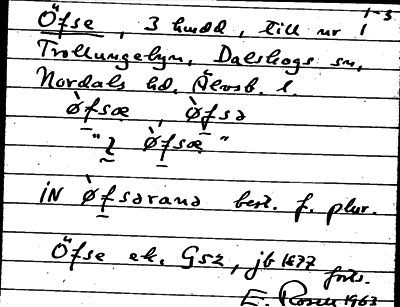 1-3
Öfse, 3 hmdd, till nr 1
Trollungebyn, Dalskogs sn,
Nordals hd, Älvsb. l.
òfsæ, òfsə
"} òfsæ "
iN òfsərana best. f. plur.
Öfse ek. Gsz, jb 1877
forts.
E. Rosen 1963